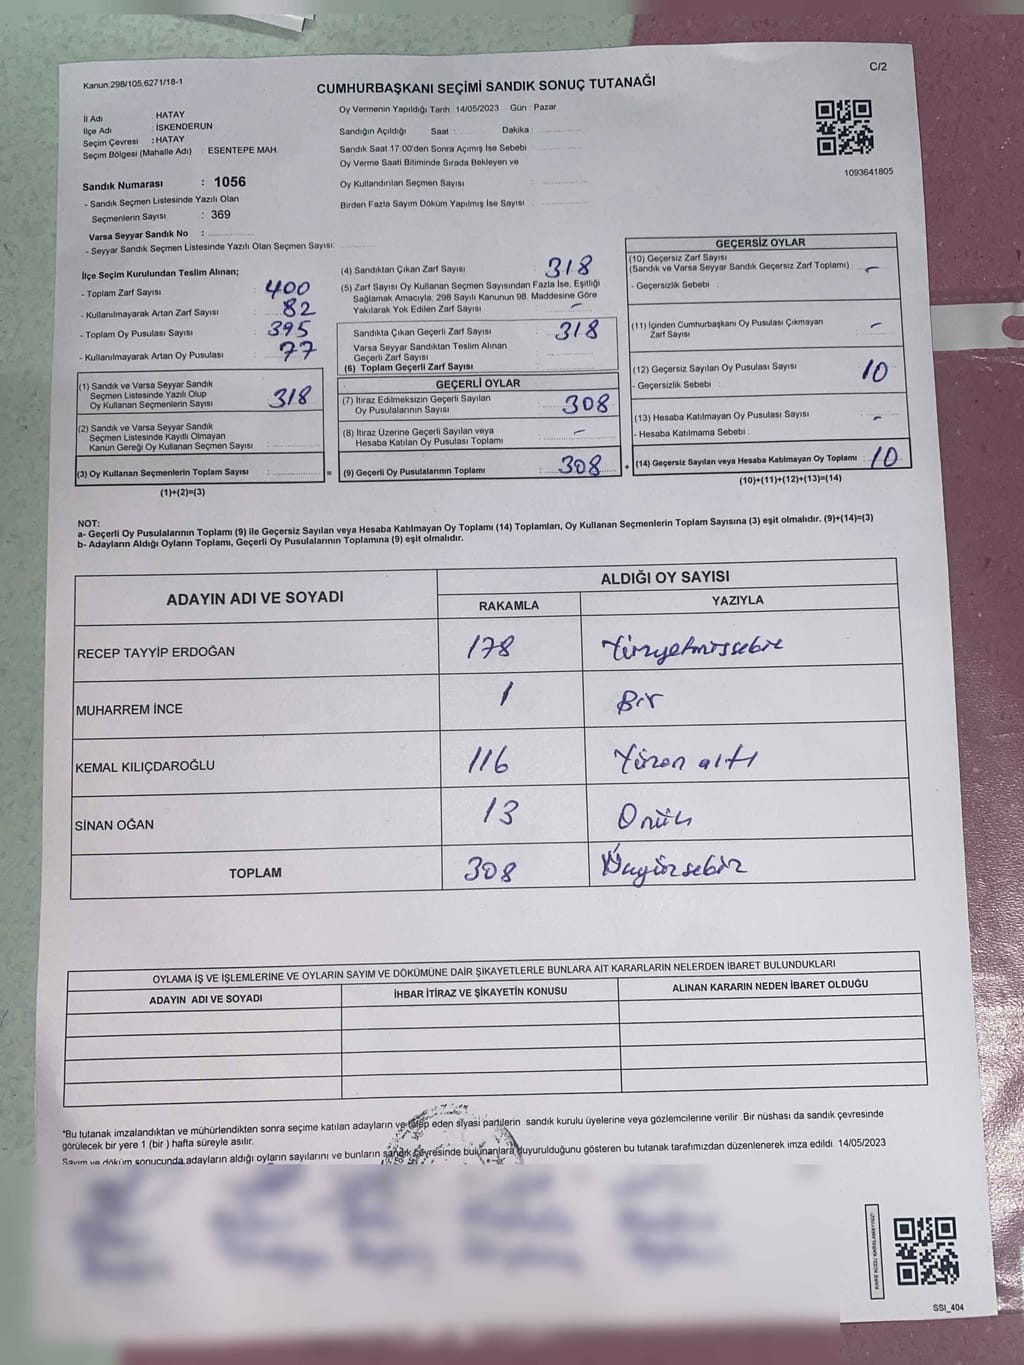 C/2
Kanun:298/105,6271/18-1
CUMHURBAŞKANI SEÇİMİ SANDIK SONUÇ TUTANAĞI
İl Adı : HATAY
İlçe Adı : İSKENDERUN
Seçim Çevresi : HATAY
Seçim Bölgesi (Mahalle Adı) : ESENTEPE MAH.
Sandık Numarası : 1056
- Sandık Seçmen Listesinde Yazılı Olan
Seçmenlerin Sayısı : 369
Varsa Seyyar Sandık No :
- Seyyar Sandık Seçmen Listesinde Yazılı Olan Seçmen Sayısı:
Oy Vermenin Yapıldığı Tarih : 14/05/2023 Gün : Pazar
Sandığın Açıldığı Saat : Dakika :
Sandık Saat 17:00'den Sonra Açımış İse Sebebi :
Oy Verme Saati Bitiminde Sırada Bekleyen ve
Oy Kullandırılan Seçmen Sayısı :
Birden Fazla Sayım Döküm Yapılmış İse Sayısı :
1093641805
İlçe Seçim Kurulundan Teslim Alınan;
- Toplam Zarf Sayısı : 400
- Kullanılmayarak Artan Zarf Sayısı : 82
- Toplam Oy Pusulası Sayısı : 395
- Kullanılmayarak Artan Oy Pusulası : 77
(1) Sandık ve Varsa Seyyar Sandık
Seçmen Listesinde Yazılı Olup
Oy Kullanan Seçmenlerin Sayısı : 318
(2) Sandık ve Varsa Seyyar Sandık
Seçmen Listesinde Kayıtlı Olmayan
Kanun Gereği Oy Kullanan Seçmen Sayısı :
(3) Oy Kullanan Seçmenlerin Toplam Sayısı : =
(1)+(2)=(3)
(4) Sandıktan Çıkan Zarf Sayısı : 318
(5) Zarf Sayısı Oy Kullanan Seçmen Sayısından Fazla İse, Eşitliği
Sağlamak Amacıyla; 298 Sayılı Kanunun 98. Maddesine Göre
Yakılarak Yok Edilen Zarf Sayısı : -
Sandıkta Çıkan Geçerli Zarf Sayısı : 318
Varsa Seyyar Sandıktan Teslim Alınan
Geçerli Zarf Sayısı :
(6) Toplam Geçerli Zarf Sayısı :
GEÇERLİ OYLAR
(7) İtiraz Edilmeksizin Geçerli Sayılan
Oy Pusulalarının Sayısı : 308
(8) İtiraz Üzerine Geçerli Sayılan veya
Hesaba Katılan Oy Pusulası Toplamı : -
(9) Geçerli Oy Pusulalarının Toplamı : 308 +
GEÇERSİZ OYLAR
(10) Geçersiz Zarf Sayısı
(Sandık ve Varsa Seyyar Sandık Geçersiz Zarf Toplamı) : -
- Geçersizlik Sebebi :
(11) İçinden Cumhurbaşkanı Oy Pusulası Çıkmayan
Zarf Sayısı : -
(12) Geçersiz Sayılan Oy Pusulası Sayısı : 10
- Geçersizlik Sebebi :
(13) Hesaba Katılmayan Oy Pusulası Sayısı : -
- Hesaba Katılmama Sebebi :
(14) Geçersiz Sayılan veya Hesaba Katılmayan Oy Toplamı : 10
(10)+(11)+(12)+(13)=(14)
NOT:
a- Geçerli Oy Pusulalarının Toplamı (9) ile Geçersiz Sayılan veya Hesaba Katılmayan Oy Toplamı (14) Toplamları, Oy Kullanan Seçmenlerin Toplam Sayısına (3) eşit olmalıdır. (9)+(14)=(3)
b- Adayların Aldığı Oyların Toplamı, Geçerli Oy Pusulalarının Toplamına (9) eşit olmalıdır.
ADAYIN ADI VE SOYADI ALDIĞI OY SAYISI
RAKAMLA YAZIYLA
RECEP TAYYİP ERDOĞAN 178 Yüzyetmişsekiz
MUHARREM İNCE 1 Bir
KEMAL KILIÇDAROĞLU 116 Yüzon altı
SİNAN OĞAN 13 Onüç
TOPLAM 308 Üçyüzsekiz
OYLAMA İŞ VE İŞLEMLERİNE VE OYLARIN SAYIM VE DÖKÜMÜNE DAİR ŞİKAYETLERLE BUNLARA AİT KARARLARIN NELERDEN İBARET BULUNDUKLARI
ADAYIN ADI VE SOYADI İHBAR İTİRAZ VE ŞİKAYETİN KONUSU ALINAN KARARIN NEDEN İBARET OLDUĞU
*Bu tutanak imzalandıktan ve mühürlendikten sonra seçime katılan adayların ve talep eden siyasi partilerin sandık kurulu üyelerine veya gözlemcilerine verilir. Bir nüshası da sandık çevresinde
görülecek bir yere 1 (bir) hafta süreyle asılır.
Sayım ve döküm sonucunda adayların aldığı oyların sayılarını ve bunların sandık çevresinde bulunanlara duyurulduğunu gösteren bu tutanak tarafımızdan düzenlenerek imza edildi. 14/05/2023
KARE KODU KARALAMAYINIZ!
SSI_404